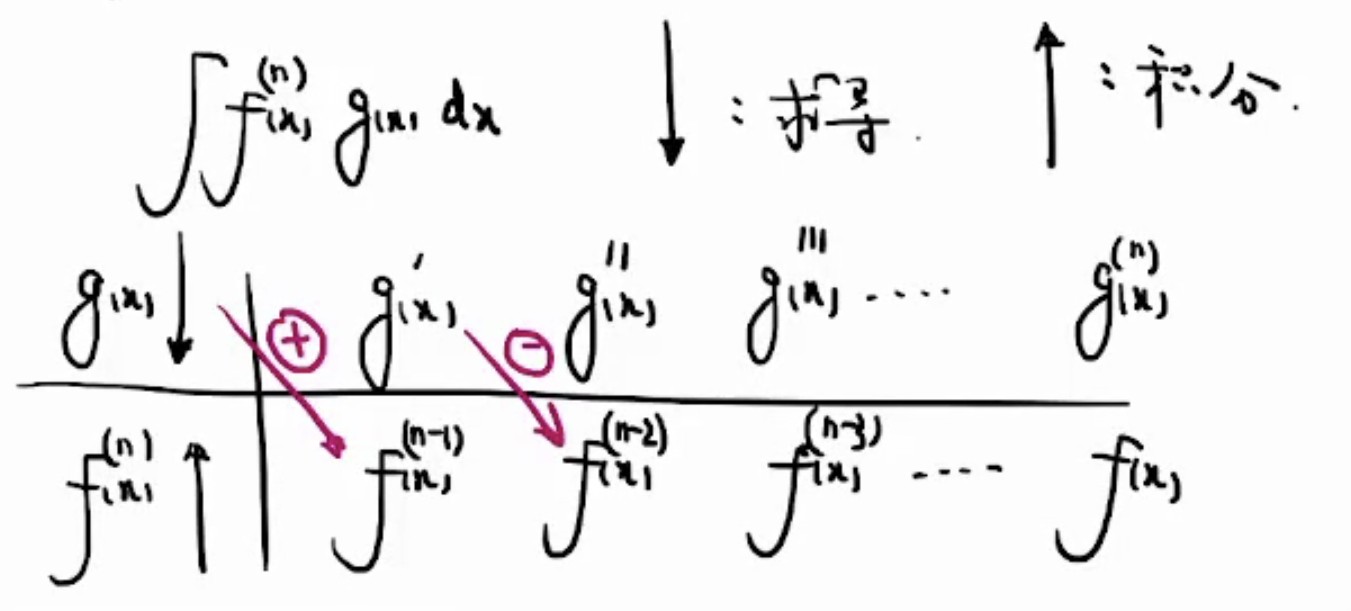 ∫ f^{(n)}(x) g(x) dx ↓ : 求导. ↑ : 积分.
g(x) ↓ ⊕ g'(x) ⊖ g''(x) g'''(x) ···· g^{(n)}(x)
f^{(n)}(x) ↑ f^{(n-1)}(x) f^{(n-2)}(x) f^{(n-3)}(x) ···· f(x)